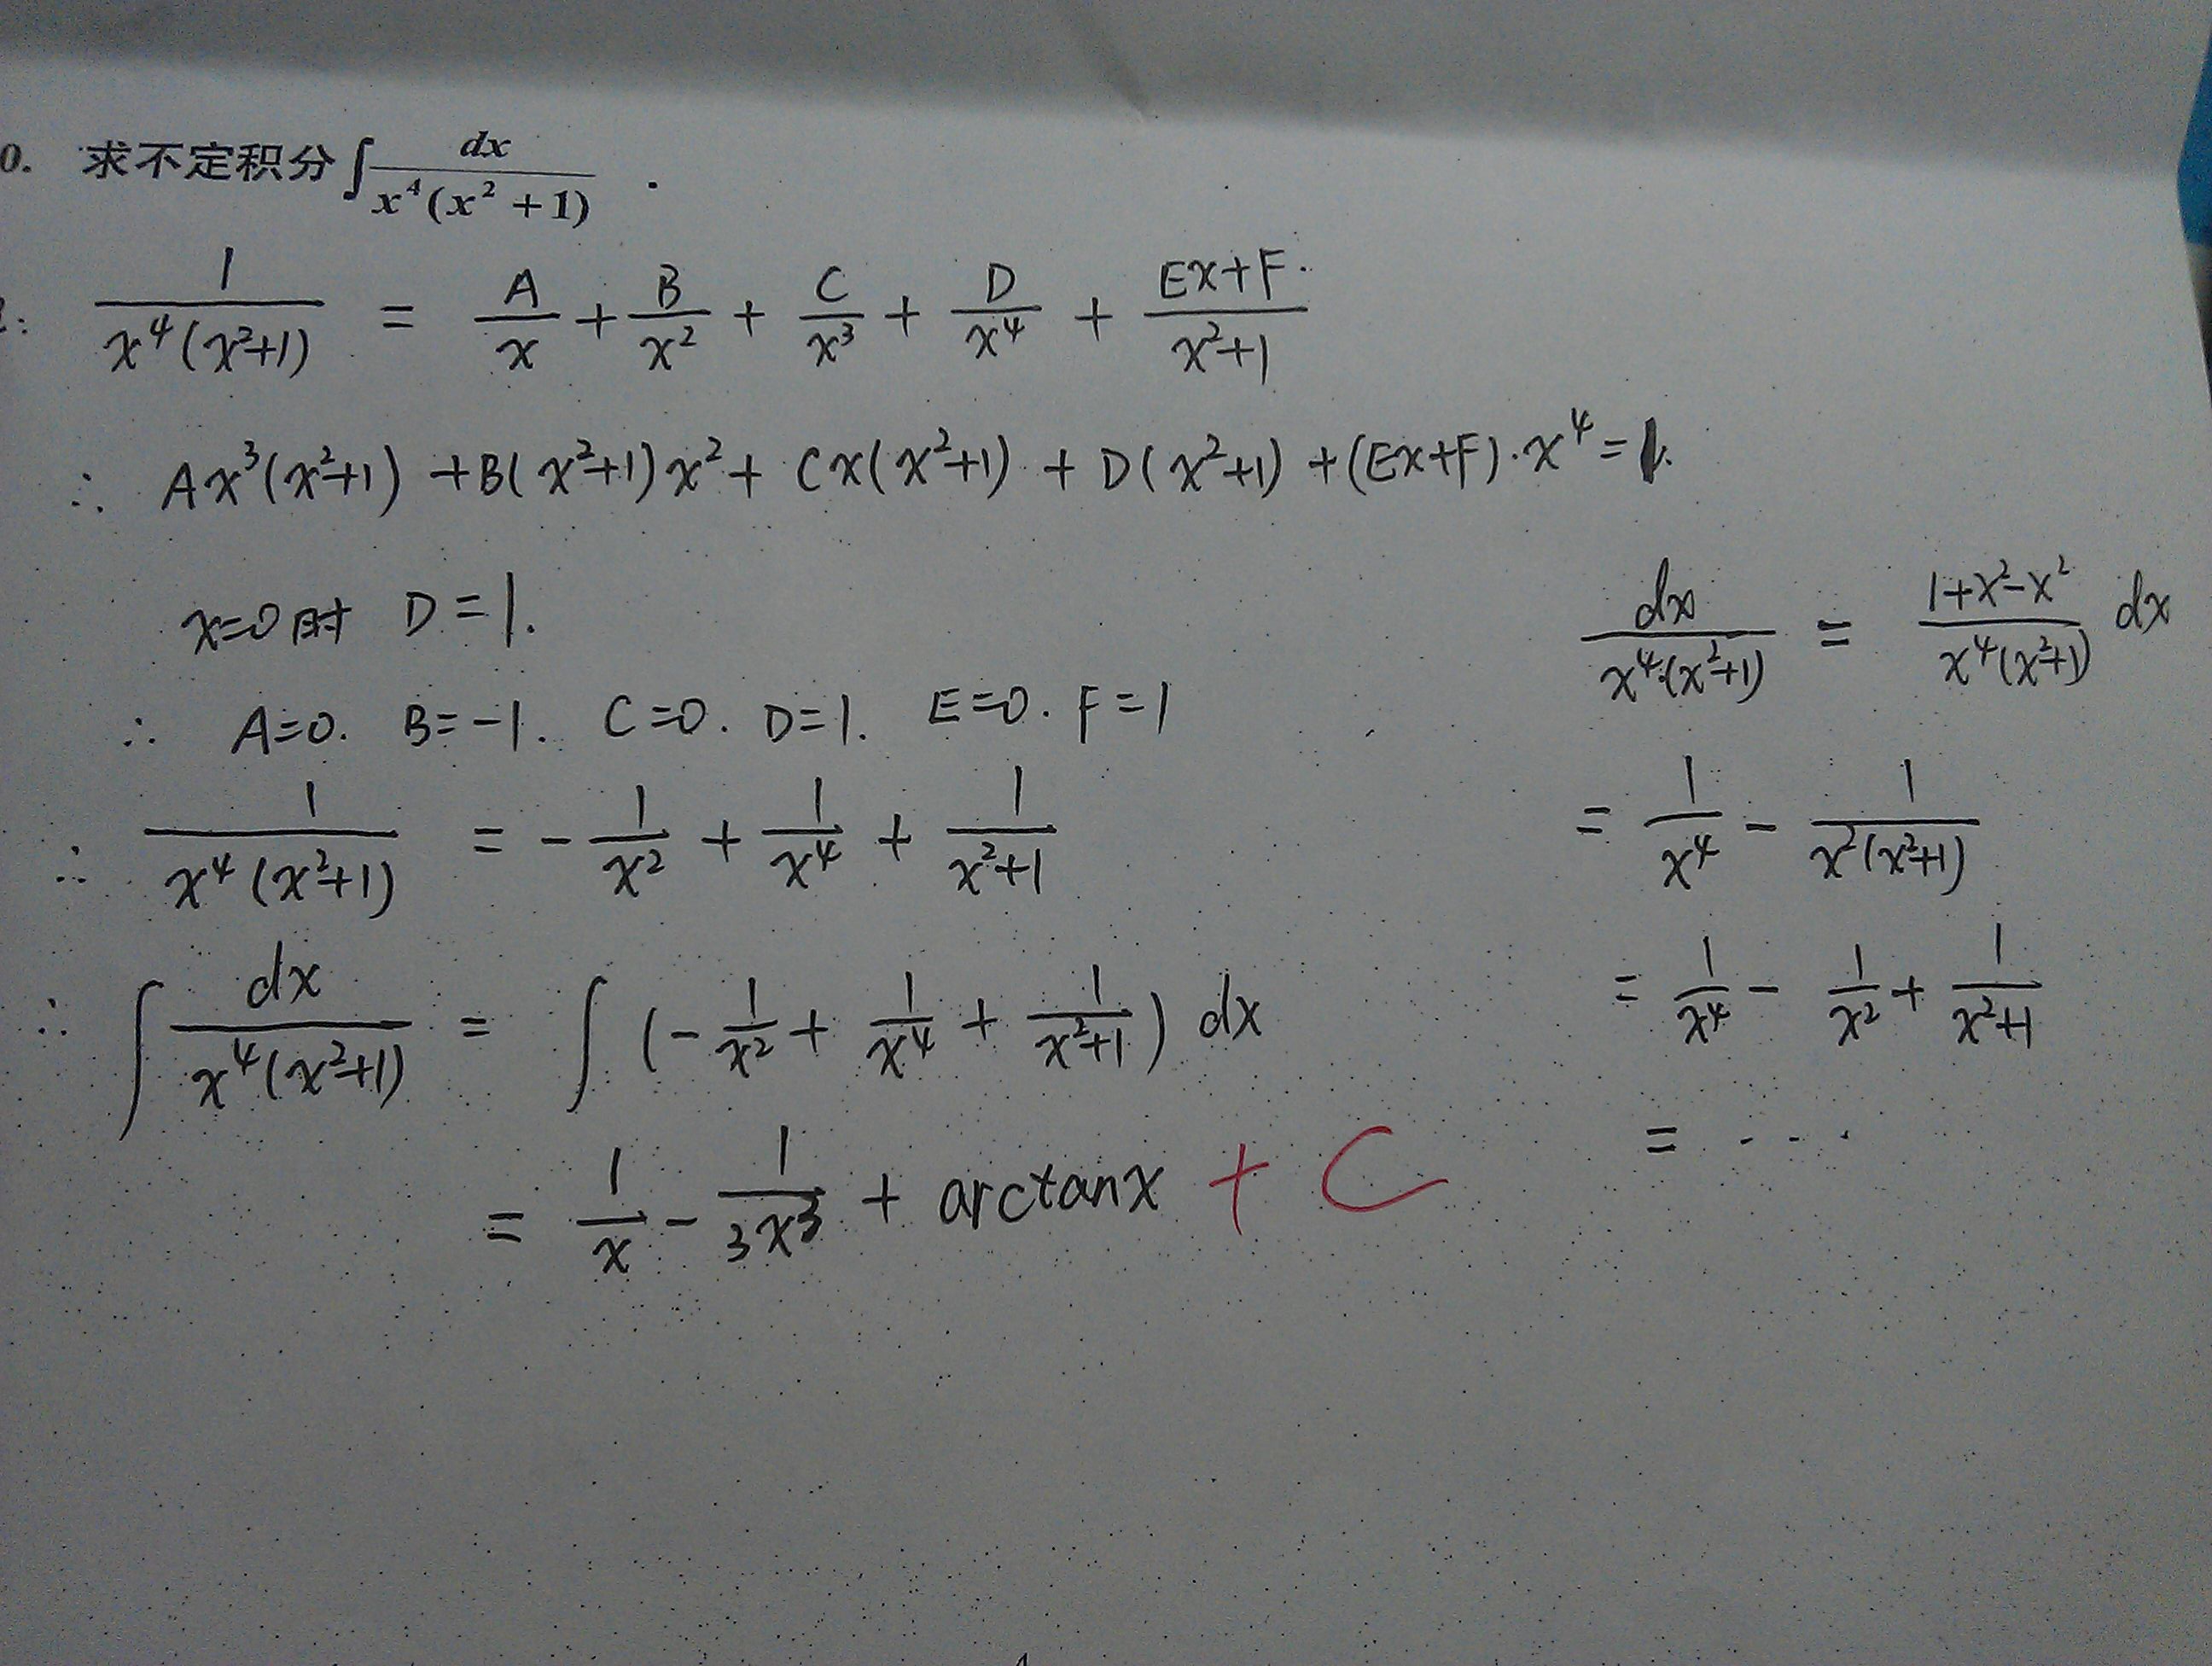 0. 求不定积分 ∫ dx / x⁴(x² + 1) .
: 1 / x⁴(x²+1) = A/x + B/x² + C/x³ + D/x⁴ + Ex+F. / x²+1
∴ Ax³(x²+1) + B(x²+1)x² + Cx(x²+1) + D(x²+1) + (Ex+F)·x⁴ = 1.
x=0时 D=1.
∴ A=0. B=-1. C=0. D=1. E=0. F=1
∴ 1 / x⁴(x²+1) = - 1/x² + 1/x⁴ + 1 / x²+1
∴ ∫ dx / x⁴(x²+1) = ∫ (- 1/x² + 1/x⁴ + 1 / x²+1) dx
= 1/x - 1/3x³ + arctanx + C
dx / x⁴(x²+1) = 1+x²-x² / x⁴(x²+1) dx
= 1/x⁴ - 1 / x²(x²+1)
= 1/x⁴ - 1/x² + 1 / x²+1
= - - - ·